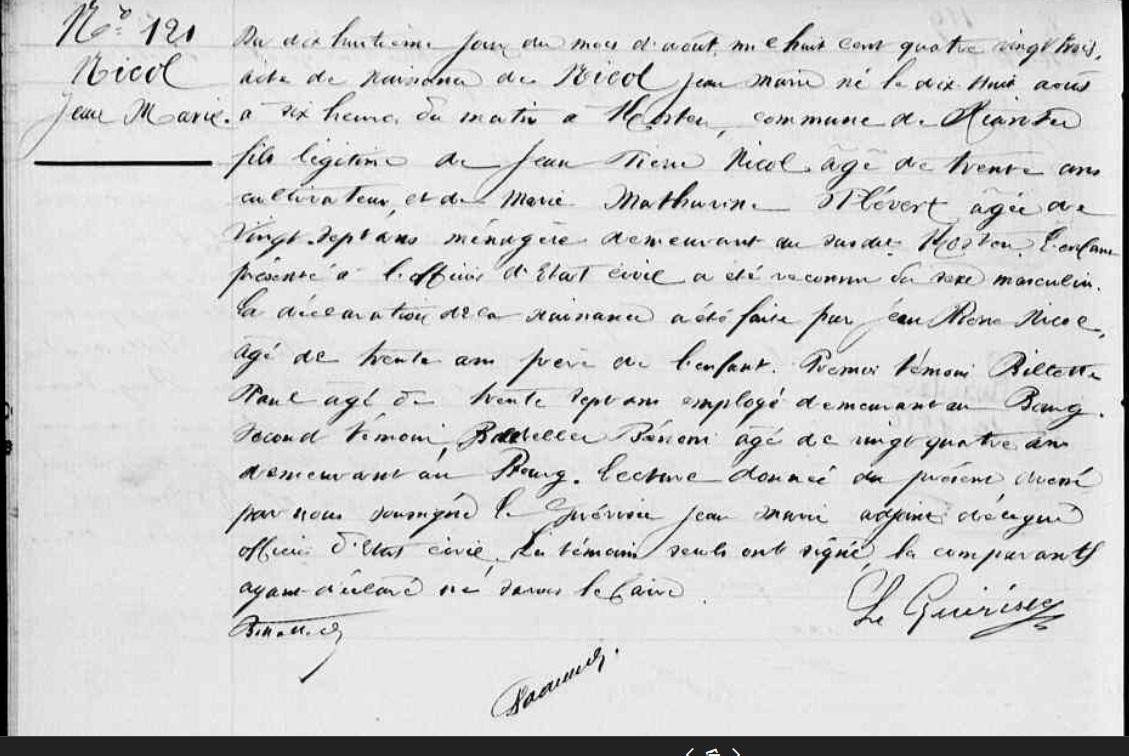 No. 121
Nicol
Jean Marie.
Du dix huitième jour du mois d'août mil huit cent quatre vingt trois,
acte de naissance de Nicol Jean Marie né le dix huit août
à six heures du matin à commune de
fils légitime de Jean Pierre Nicol âgé de trente ans
cultivateur, et de Marie Mathurine âgée de
vingt sept ans ménagère demeurant au susdit L'enfant
présenté à l'officier d'Etat civil a été reconnu du sexe masculin.
La déclaration de la naissance a été faite par Jean Pierre Nicol,
âgé de trente ans père de l'enfant. Premier témoin
Paul âgé de trente sept ans employé demeurant au Bourg.
Second témoin âgé de vingt quatre ans
demeurant au Bourg. Lecture donnée du présent
par nous soussigné Le Guérisse Jean Marie adjoint délégué
officier d'Etat civil. Les témoins seuls ont signé, les comparants
ayant déclaré ne savoir le faire.